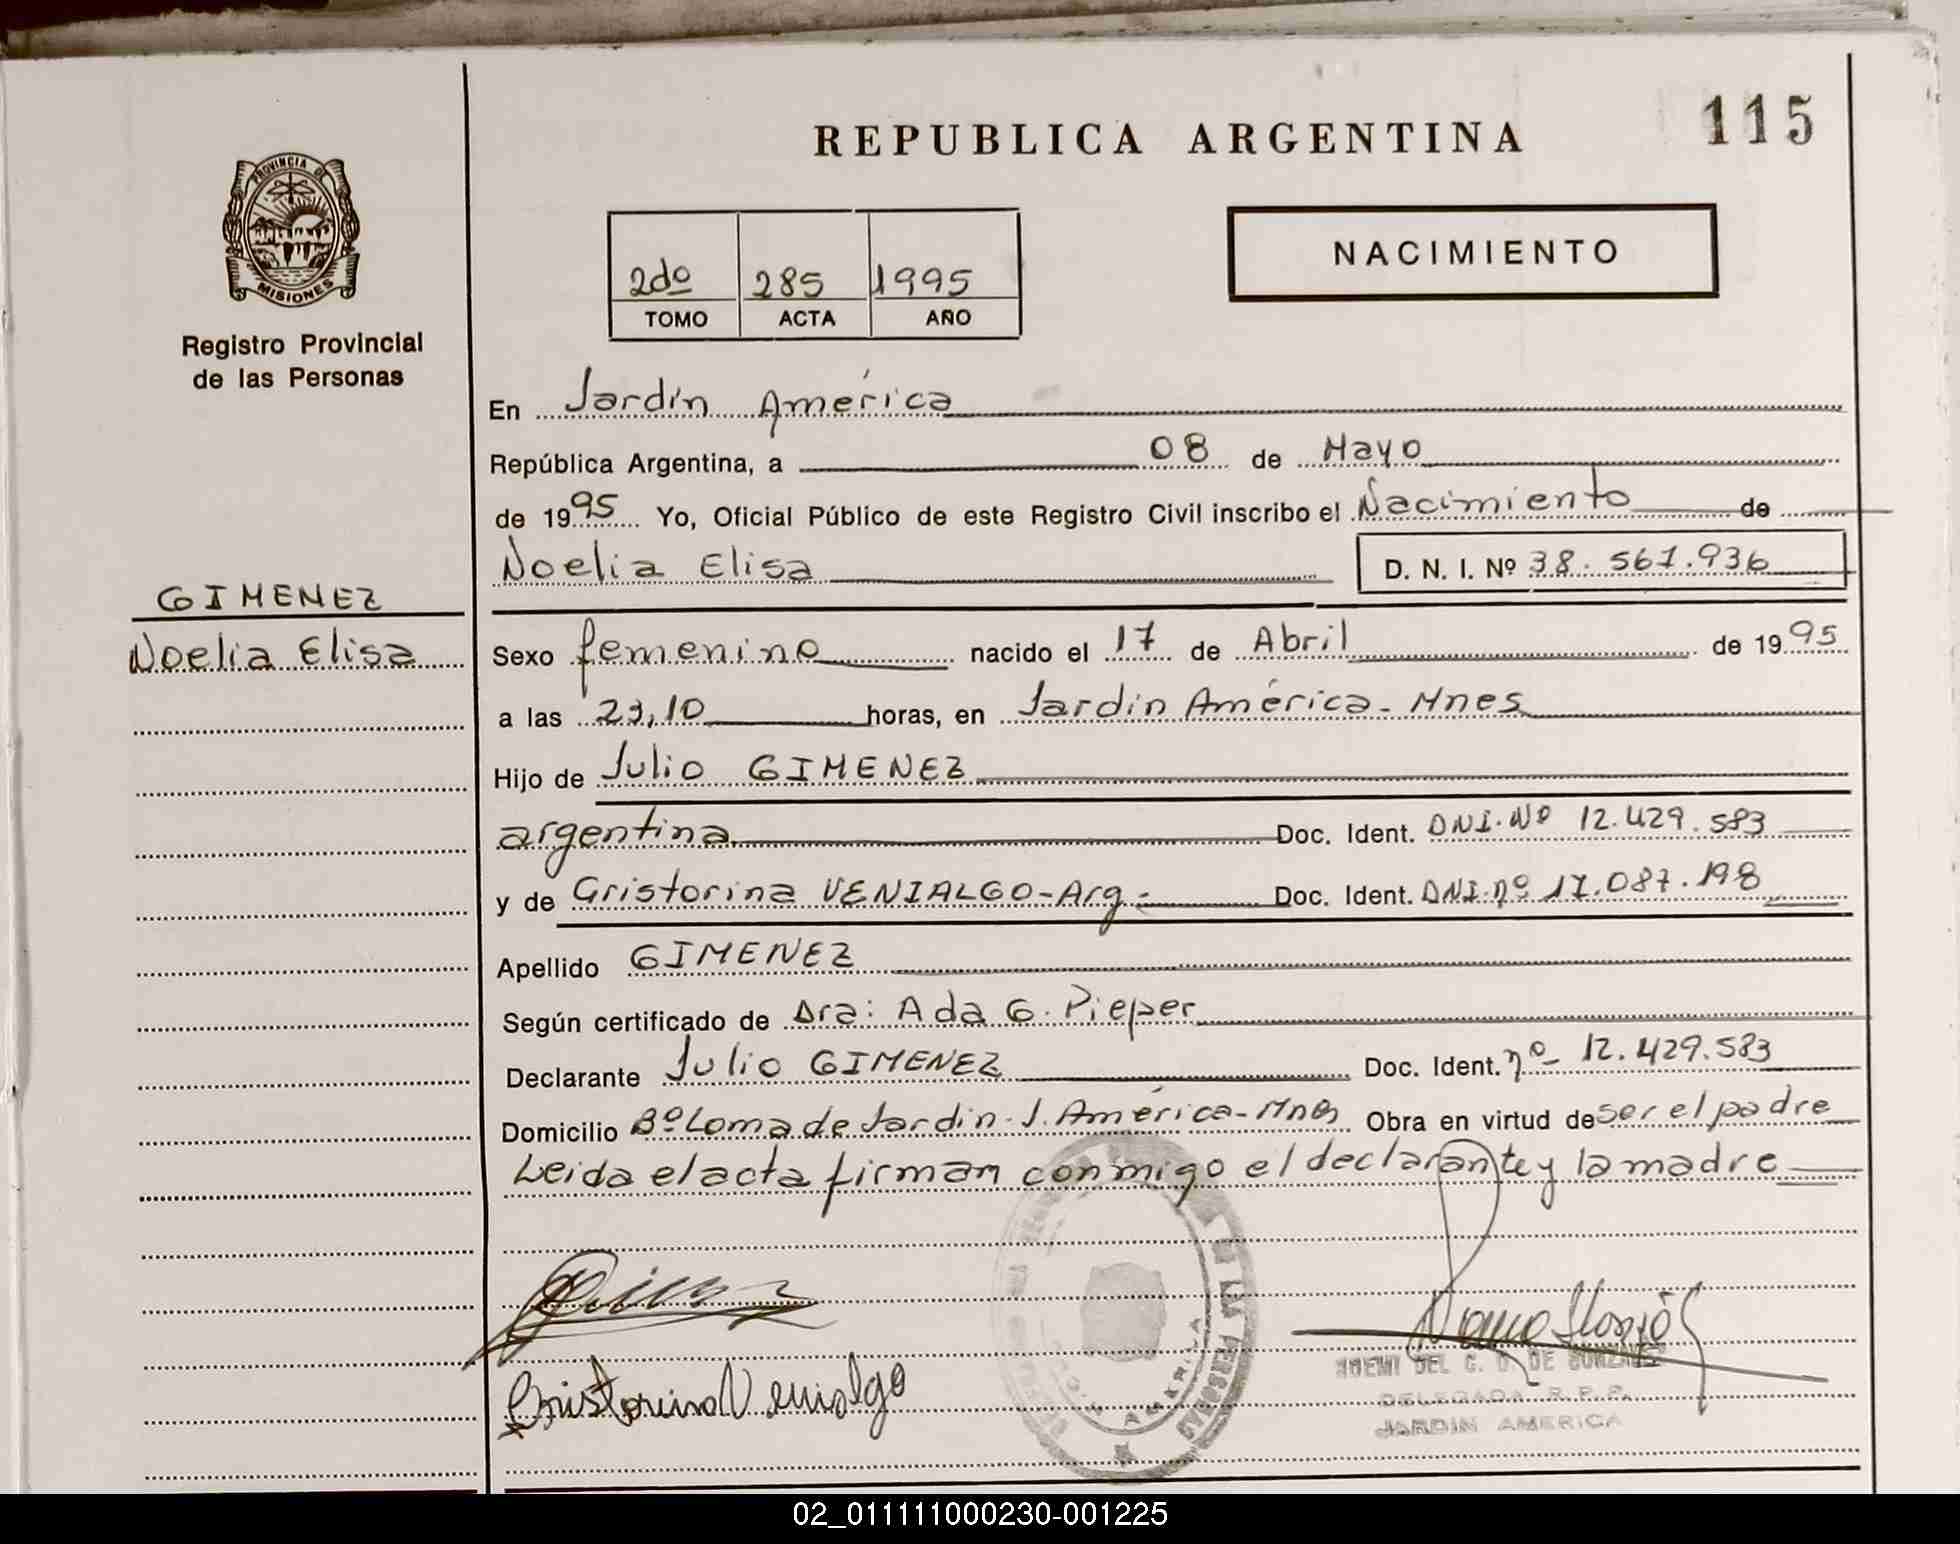 REPUBLICA ARGENTINA
115
PROVINCIA DE
MISIONES
Registro Provincial
de las Personas
2do 285 1995
TOMO ACTA AÑO
NACIMIENTO
En Jardín América
República Argentina, a 08 de Mayo
de 1995 Yo, Oficial Público de este Registro Civil inscribo el Nacimiento de
Noelia Elisa D. N. I. Nº 38.561.936
GIMENEZ
Noelia Elisa
Sexo femenino nacido el 17 de Abril de 1995
a las 23,10 horas, en Jardín América - Mnes
Hijo de Julio GIMENEZ
argentina Doc. Ident. DNI. Nº 12.429.583
y de Cristorina VENIALGO - Arg.- Doc. Ident. DNI. nº 17.087.198
Apellido GIMENEZ
Según certificado de Dra: Ada G. Pieper
Declarante Julio GIMENEZ Doc. Ident. nº 12.429.583
Domicilio Bº Loma de Jardín - J. América - Mnes Obra en virtud de ser el padre
Leida el acta firman conmigo el declarante y la madre
Cristorina Venialgo
DE LAS PERSONAS
AMERICA
NOEMI DEL C. D. DE GONZALEZ
DELEGADA R. P. P.
JARDIN AMERICA
02_011111000230-001225